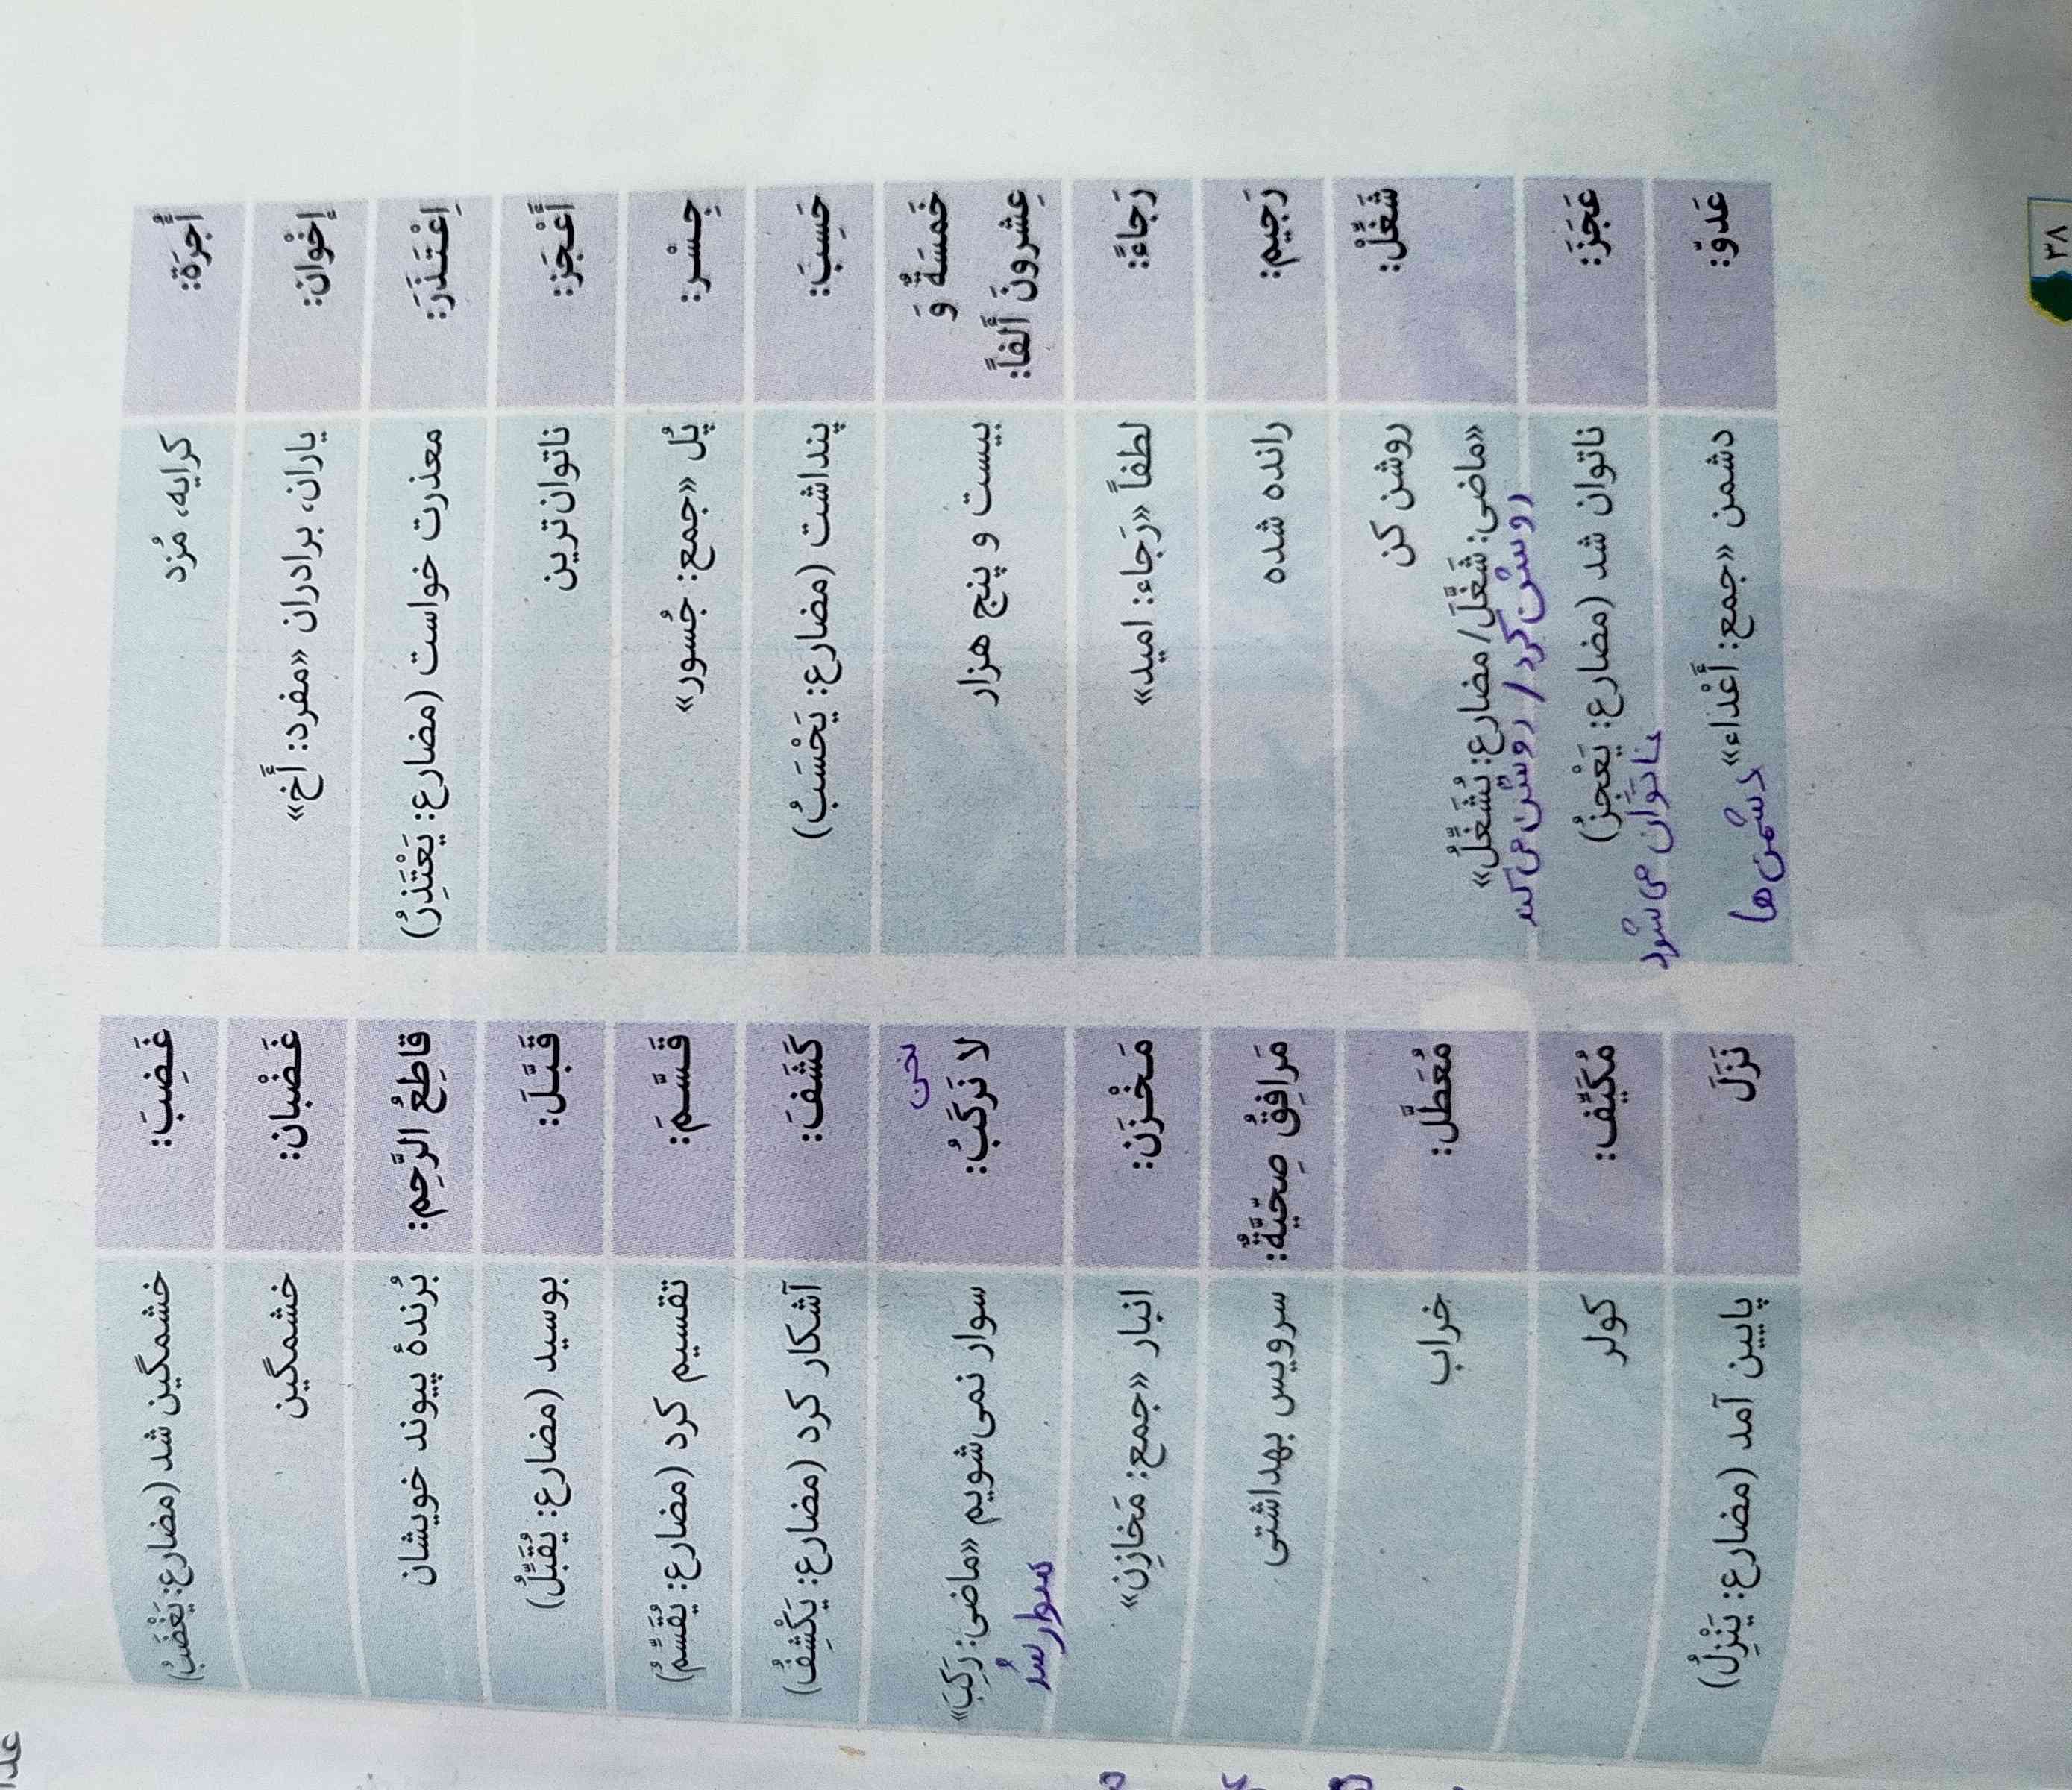 أُجرَة: کرایه، مُزد
إخْوان: یاران، برادران «مفرد: أَخ»
اِعْتَذَرَ: معذرت خواست (مضارع: یَعْتَذِرُ)
أَعْجَز: ناتوان‌ترین
جِسْر: پُل «جمع: جُسور»
حَسِبَ: پنداشت (مضارع: یَحْسَبُ)
خَمسَةٌ وَ
عِشرونَ أَلفاً: بیست و پنج هزار
رَجاءً: لطفاً «رَجاء: امید»
رَجیم: رانده شده
شَغِّلْ: روشن کن
«ماضی: شَغَّلَ/ مضارع: یُشَغِّلُ»
روشن کرد / روشن می کند
عَجَزَ: ناتوان شد (مضارع: یَعْجِزُ)
ناتوان می شود
عَدُوّ: دشمن «جمع: أَعْداء»
دشمن ها
غَضِبَ: خشمگین شد (مضارع: یَغْضَبُ)
غَضْبان: خشمگین
قاطِعُ الرَّحِم: بُرندهٔ پیوند خویشان
قَبَّلَ: بوسید (مضارع: یُقَبِّلُ)
قَسَّمَ: تقسیم کرد (مضارع: یُقَسِّمُ)
کَشَفَ: آشکار کرد (مضارع: یَکْشِفُ)
نحن
لا نَرکَبُ: سوار نمی‌شویم «ماضی: رَکِبَ»
سوار شد
مَخْزَن: انبار «جمع: مَخازِن»
مَرافِقُ صِحّیَّةٌ: سرویس بهداشتی
مُعَطَّل: خراب
مُکَیِّف: کولر
نَزَلَ پایین آمد (مضارع: یَنْزِلُ)
۳۸